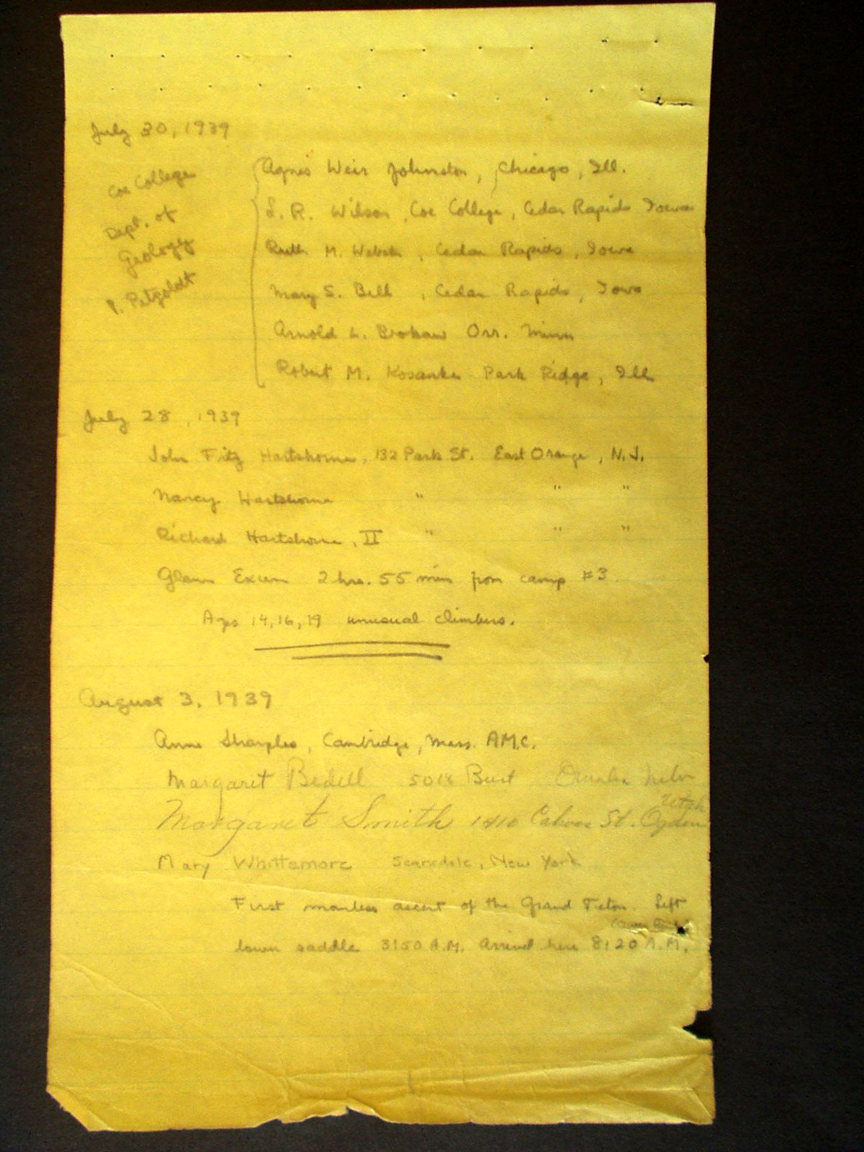 July 30, 1939
Coe College
Dept. of
Geology
P. Petzoldt
Agnes Weir Johnston, Chicago, Ill.
L. R. Wilson, Coe College, Cedar Rapids Iowa
Ruth M. Webster, Cedar Rapids, Iowa
Mary S. Bell, Cedar Rapids, Iowa
Arnold L. Brokaw Orr. Minn
Robert M. Kosanke Park Ridge, Ill
July 28, 1939
John Fitz Hartshorne, 132 Park St. East Orange, N.J.
Nancy Hartshorne " " "
Richard Hartshorne, II " " "
Glenn Exum 2 hrs. 55 min from camp #3
Ages 14, 16, 19 unusual climbers.
August 3, 1939
Anne Sharples, Cambridge, Mass. A.M.C.
Margaret Bedell 5018 Burt Omaha Nebr
Margaret Smith 1410 St. Ogden Utah
Mary Whittemore Scarsdale, New York
First manless ascent of the Grand Teton. Left
lower saddle 3:50 A.M. Arrived here 8:20 A.M.